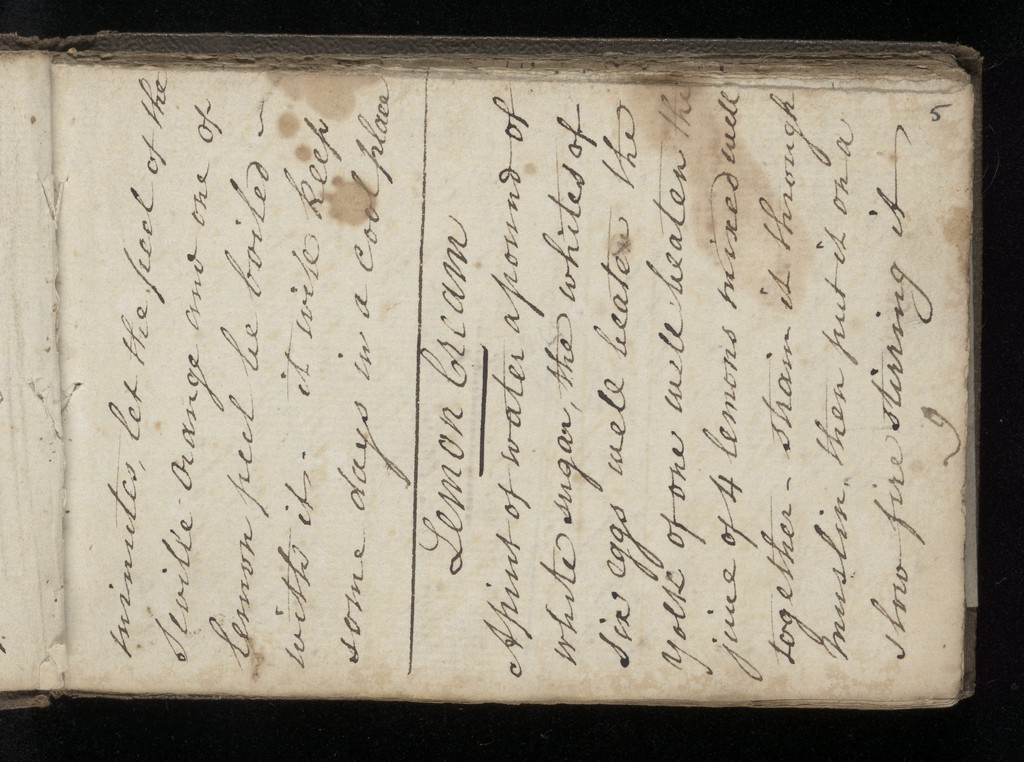 5
minutes, let the peel of the
Seville orange and one of
lemon peel be boiled -
with it - it will keep
some days in a cool place
Lemon Cream
A pint of water a pound of
white sugar, the whites of
six eggs well beaten the
yolk of one well beaten the
juice of 4 lemons mixed well
together - strain it through
muslin, then put it on a
slow fire stirring it